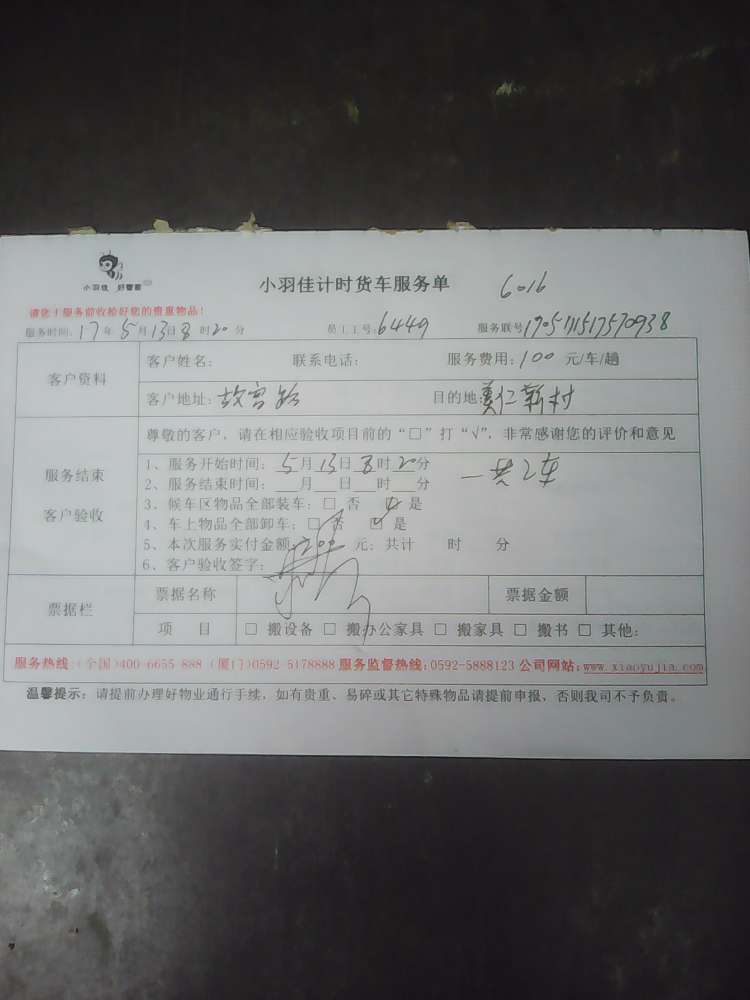 小羽佳 好管家
小羽佳计时货车服务单 6016
请您于服务前收捡好您的贵重物品!
服务时间: 17 年 5 月 13 日 8 时 20 分 员工工号: 6449 服务联号
客户资料
客户姓名: 联系电话: 服务费用: 100 元/车/趟
客户地址: 故宫路 目的地: 美仁新村
服务结束
客户验收
尊敬的客户, 请在相应验收项目前的“□”打“√”, 非常感谢您的评价和意见
1、服务开始时间: 5 月 13 日 8 时 20 分 一共2车
2、服务结束时间: 月 日 时 分
3、候车区物品全部装车: □ 否 □ 是
4、车上物品全部卸车: □ 否 □ 是
5、本次服务实付金额: 200 元; 共计 时 分
6、客户验收签字:
票据栏
票据名称 票据金额
项 目 □ 搬设备 □ 搬办公家具 □ 搬家具 □ 搬书 □ 其他:
服务热线:(全国)400-6655-888 (厦门)0592-5178888 服务监督热线:0592-5888123 公司网站:www.xiaoyujia.com
温馨提示: 请提前办理好物业通行手续, 如有贵重、易碎或其它特殊物品请提前申报, 否则我司不予负责。